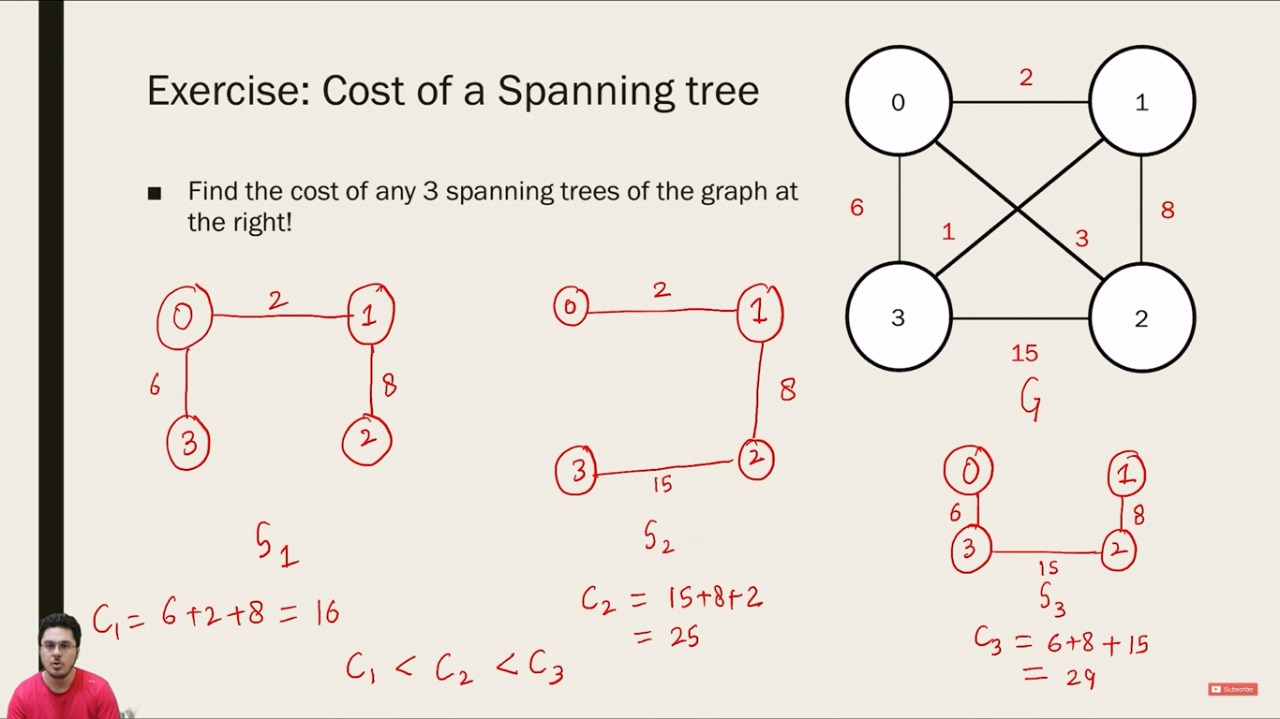 Exercise: Cost of a Spanning tree
■ Find the cost of any 3 spanning trees of the graph at
the right!
0 2 1
6 1 3 8
3 2
15
G
0 2 1
6 8
3 2
S1
C1 = 6+2+8 = 16
0 2 1
8
3 2
15
S2
C2 = 15+8+2
= 25
0 1
6 8
3 2
15
S3
C3 = 6+8+15
= 29
C1 < C2 < C3
Subscribe